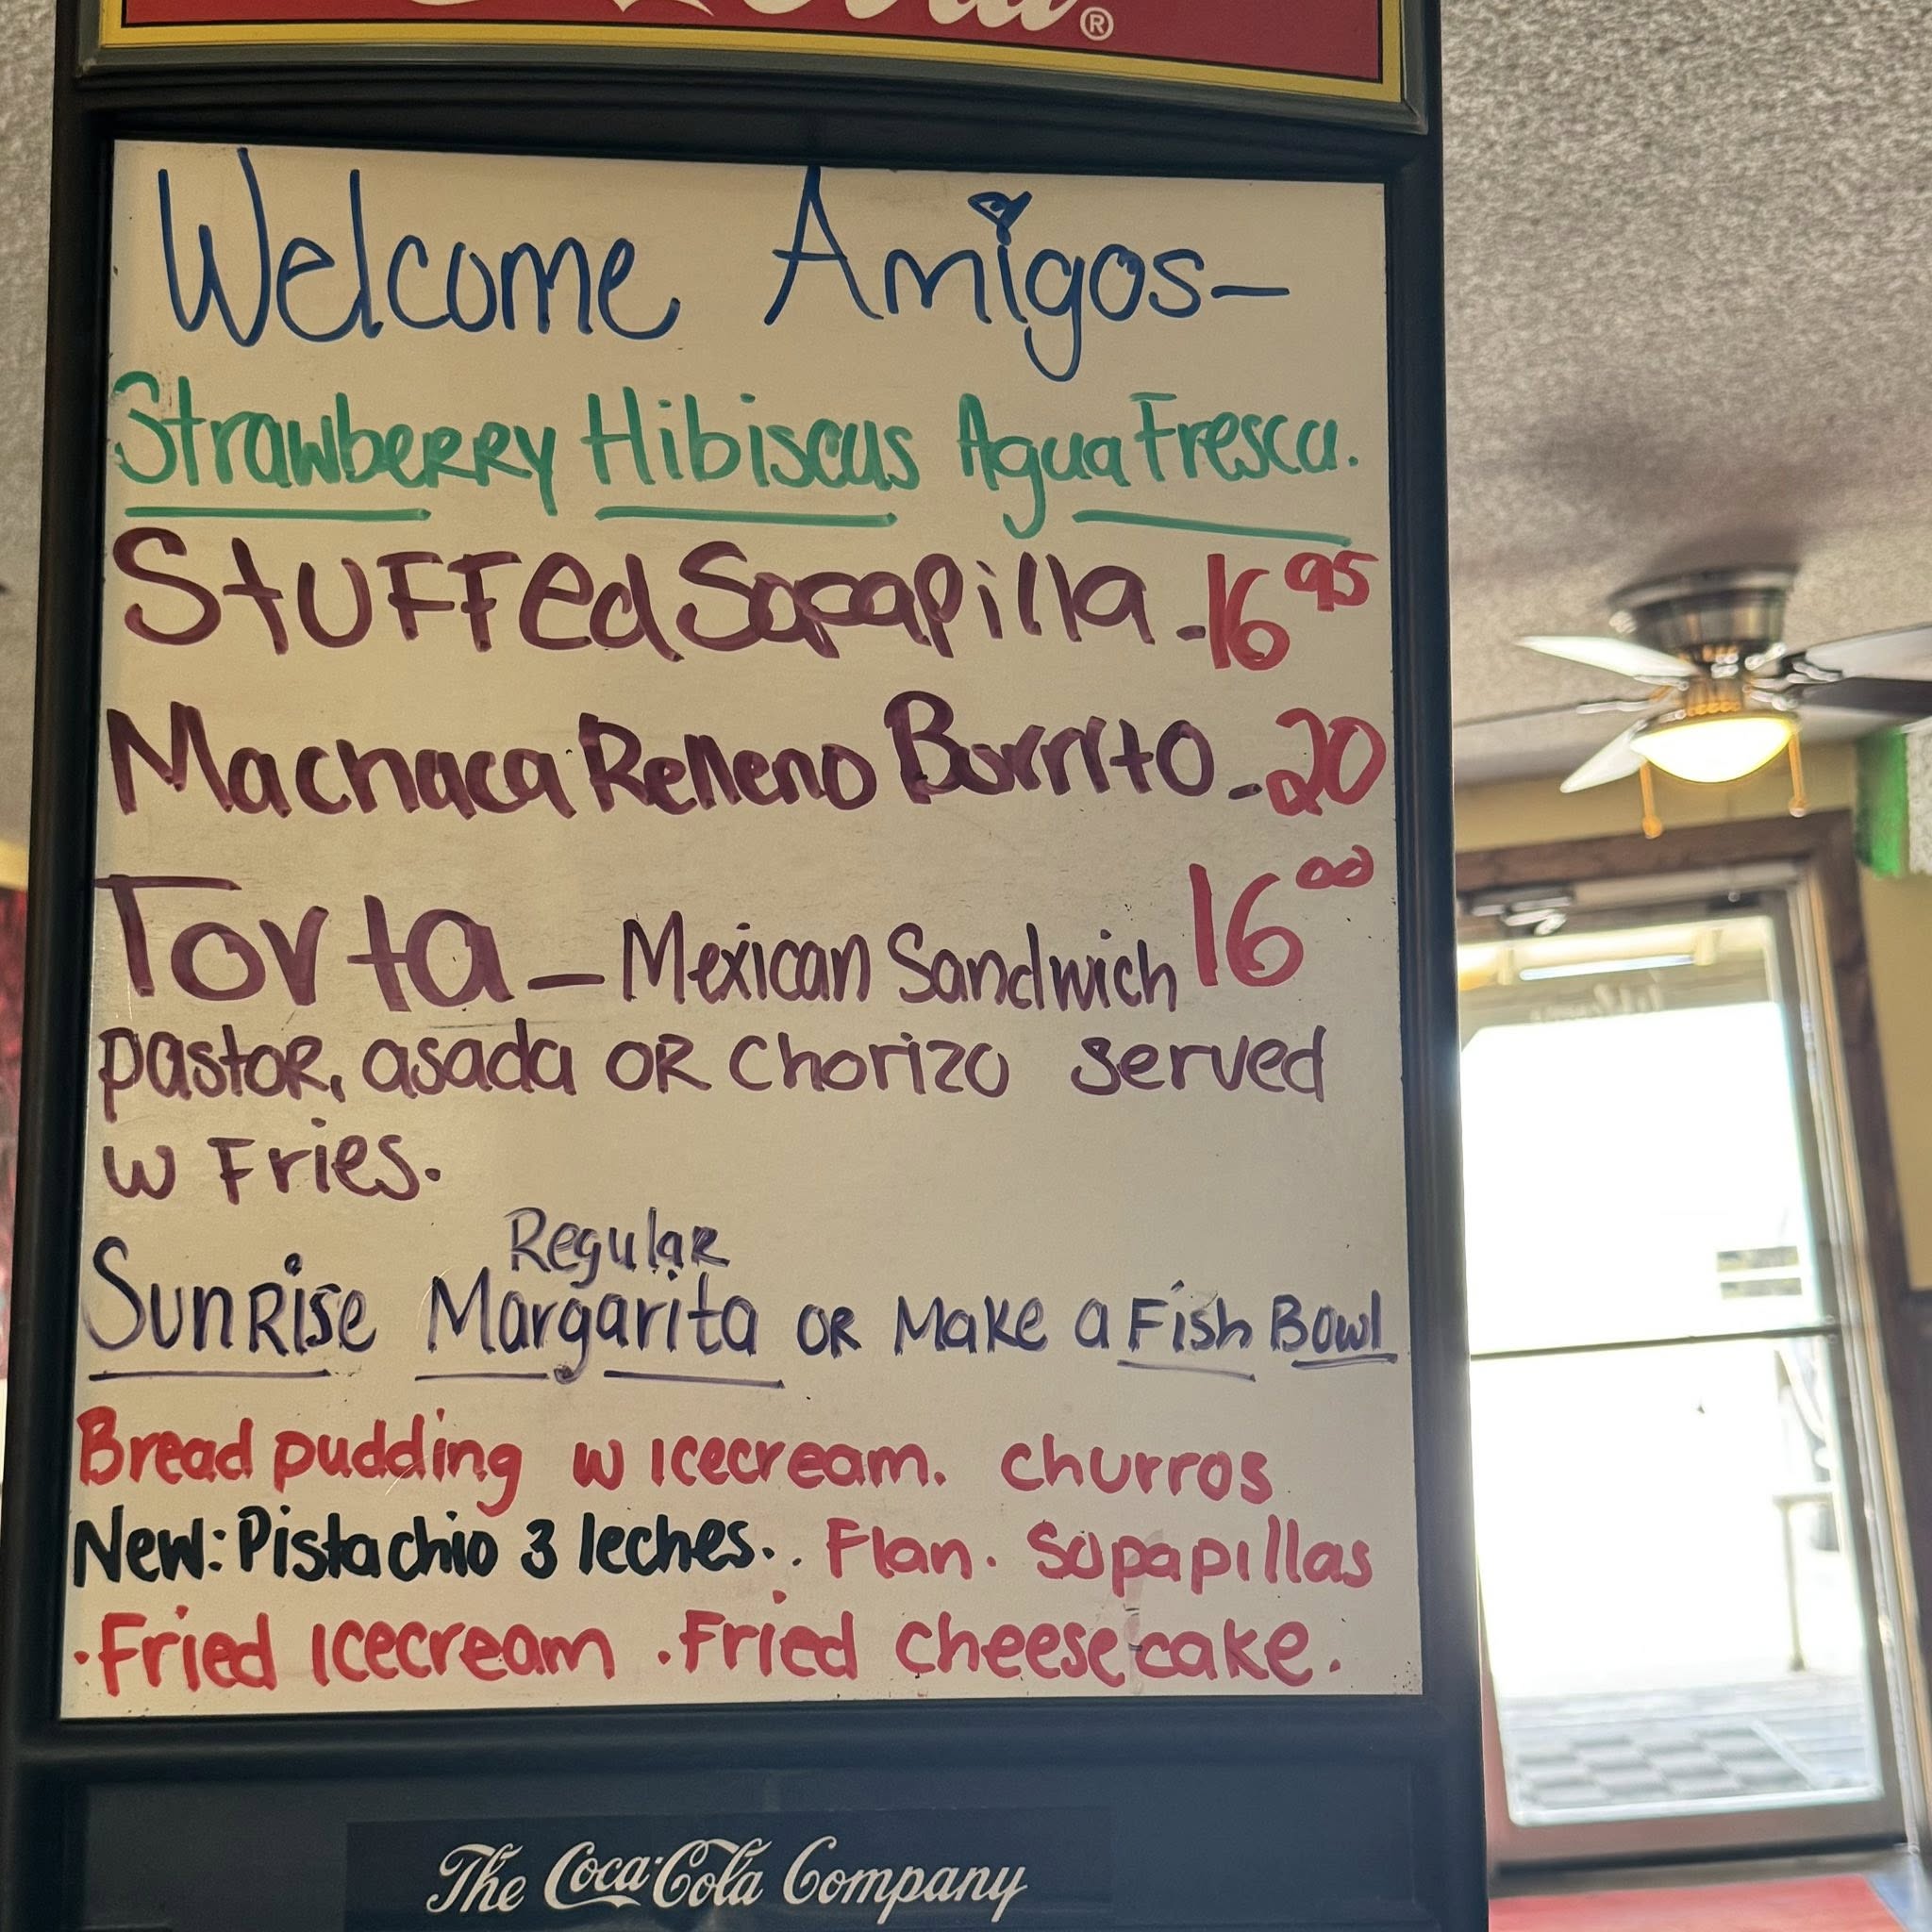 Welcome Amigos-
Strawberry Hibiscus Agua Fresca.
Stuffed Sopapilla - 16 95
Machaca Relleno Burrito - 20
Torta - Mexican Sandwich 16 00
pastor, asada or chorizo served
w Fries.
Regular
Sunrise Margarita or Make a Fish Bowl
Bread pudding w icecream. churros
New: Pistachio 3 leches.. Flan. Sopapillas
.Fried icecream .Fried cheesecake.
The Coca-Cola Company